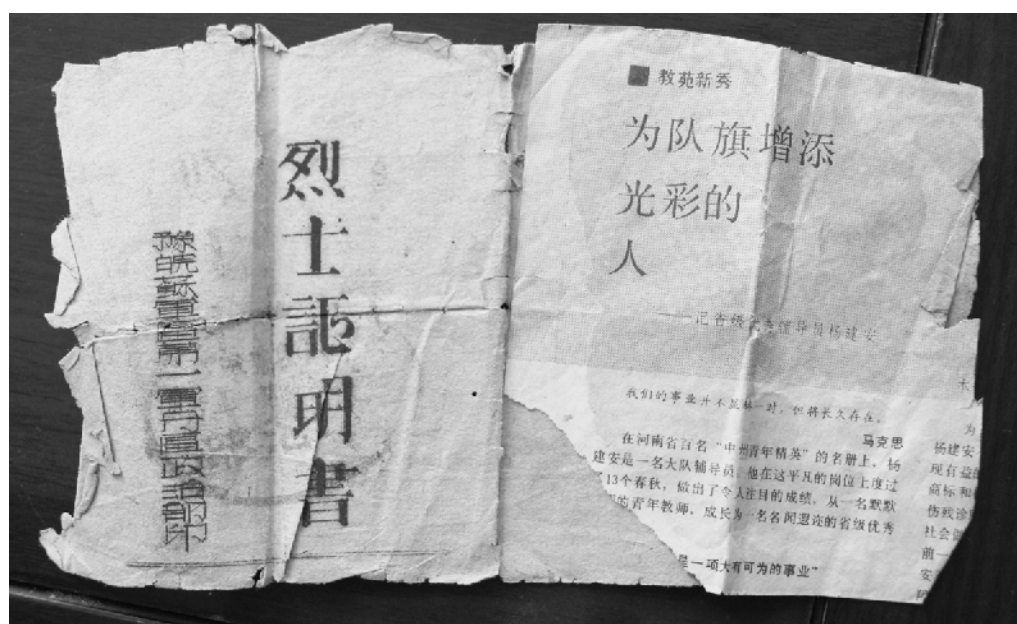 烈士証明書
豫皖蘇軍區第一軍分區政治部印
教苑新秀
为队旗增添
光彩的
人
——记省级优秀辅导员杨建安
我们的事业并不显赫一时，但将长久存在。
马克思
在河南省百名“中州青年精英”的名册上，杨
建安是一名大队辅导员，他在这平凡的岗位上度过
13个春秋，做出了令人注目的成绩，从一名默默
的青年教师，成长为一名名闻遐迩的省级优秀
是一项大有可为的事业”
长
为
杨建安
现有益
商标和
伤残诊
社会
前一
安